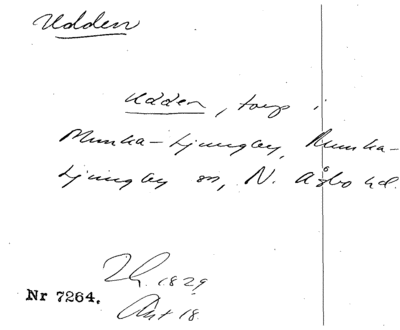 Udden
Udden, torp i
Munka-Ljungby, Munka-
Ljungby sn, N. Åsbo hd.
1829
Nr 7264. 18